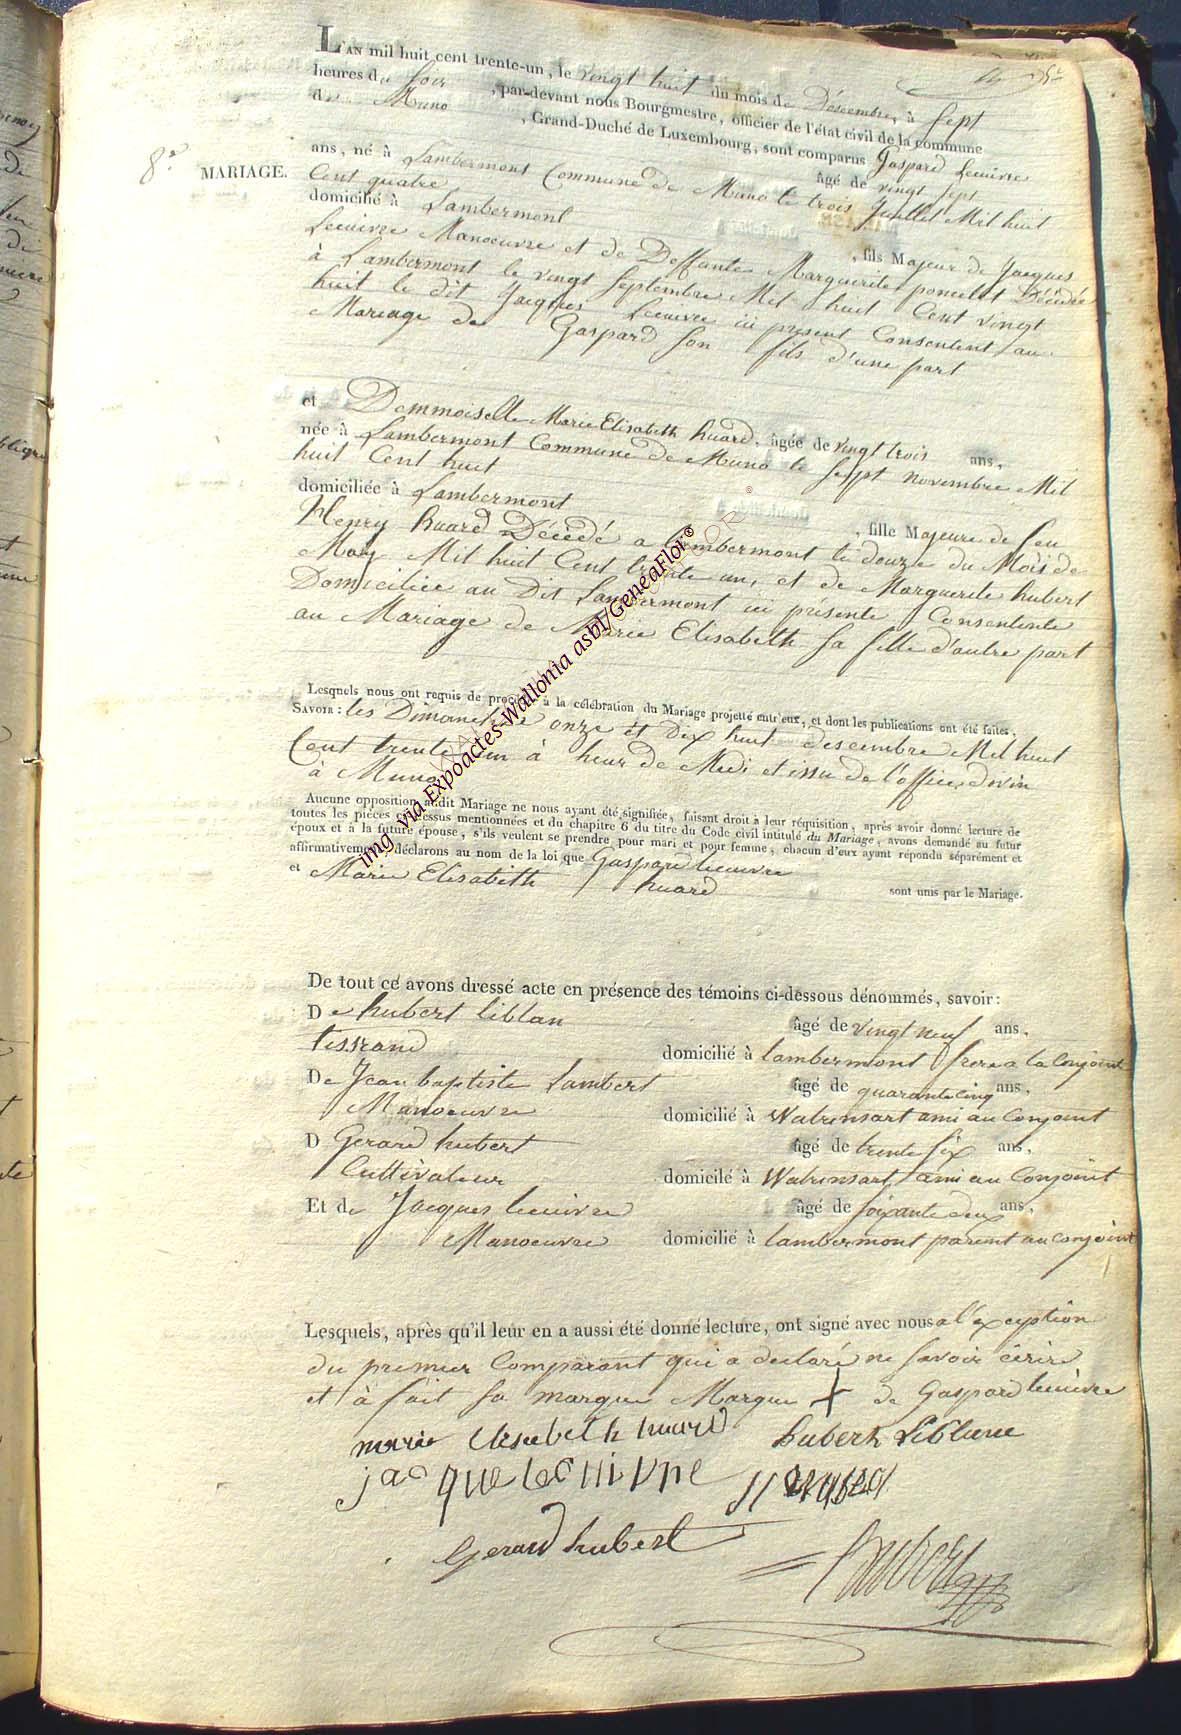 L'AN mil huit cent trente-un, le vingt huit du mois de Décembre, à sept
heures du soir, par-devant nous Bourgmestre, officier de l'état civil de la commune
de Muno, Grand-Duché de Luxembourg, sont comparus Gaspard Lecuivre
8e MARIAGE.
âgé de vingt sept
ans, né à Lambermont Commune de Muno le trois Juillet Mil huit
Cent quatre
domicilié à Lambermont, fils Majeur de Jacques
Lecuivre Manoeuvre et de Deffunte Marguerite poncelet Décédée
à Lambermont le vingt Septembre Mil huit Cent vingt
huit le dit Jacques Lecuivre ici present Consentent au
Mariage de Gaspard son fils d'une part
et Demmoiselle Marie Elisabeth huard, âgée de vingt trois ans,
née à Lambermont Commune de Muno le sept novembre Mil
huit Cent huit
domiciliée à Lambermont, fille Majeure de feu
Henry huard Décédé a Lambermont le douze du Mois de
May Mil huit Cent trente un, et de Marguerite hubert
Domiciliée au Dit Lambermont ici présente Consentente
au Mariage de Marie Elisabeth sa fille d'autre part
Lesquels nous ont requis de procéder à la célébration du Mariage projetté entr'eux, et dont les publications ont été faites,
SAVOIR: les Dimanche onze et dix huit descembre Mil huit
Cent trente un à heur de Midi et issu de l'office divin
à Muno
Aucune opposition audit Mariage ne nous ayant été signifiée, faisant droit à leur réquisition, après avoir donné lecture de
toutes les pièces ci-dessus mentionnées et du chapitre 6 du titre du Code civil intitulé du Mariage, avons demandé au futur
époux et à la future épouse, s'ils veulent se prendre pour mari et pour femme, chacun d'eux ayant répondu séparément et
affirmativement, déclarons au nom de la loi que Gaspard lecuivre
et Marie Elisabeth huard sont unis par le Mariage.
De tout ce avons dressé acte en présence des témoins ci-dessous dénommés, savoir:
De hubert liblan âgé de vingt neuf ans,
tissrand domicilié à lambermont frere a la Conjointe
De Jean baptiste Lambert âgé de quarante cinq ans,
Manoeuvre domicilié à Watrinsart ami au Conjoint
D Gerard hubert âgé de trente six ans,
Cultivateur domicilé à Watrinsart ami au Conjoint
Et de Jacques lecuivre âgé de soixante deux ans,
Manoeuvre domicilié à lambermont parent au conjoint
Lesquels, après qu'il leur en a aussi été donné lecture, ont signé avec nous a l'exception
du premier Comparant qui a declaré ne savoir écrire
et à fait sa marque Marque + de Gaspard lecuivre
marie elisabeth huard hubert Liblanc
jacque lecuivre
Gerard hubert
hubert
img via Expoactes-Wallonia asbl/GeneaFloi©